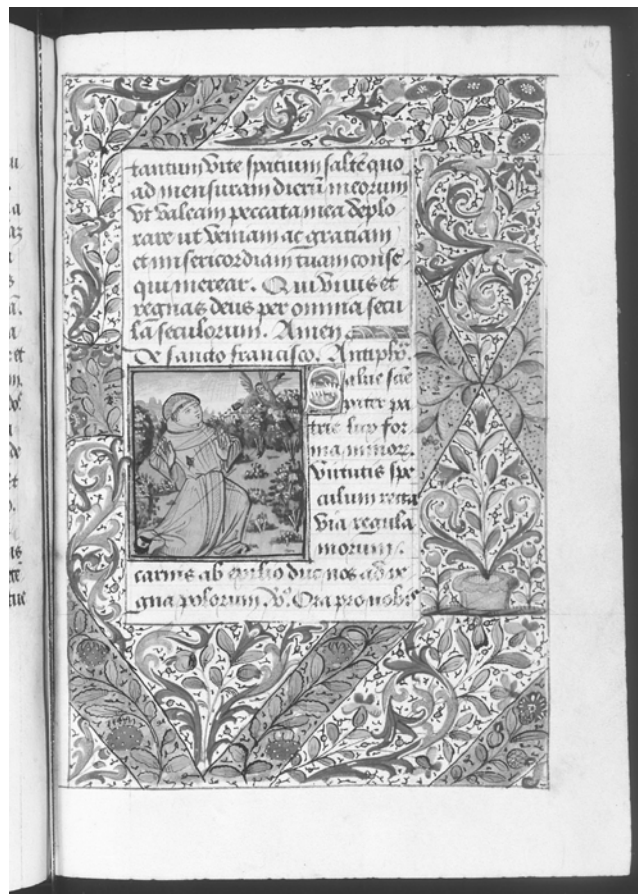 tantum vite spatium saltē quo
ad mensuram dierū meorum
vt valeam peccata mea deplo
rare ut veniam ac gratiam
et misericordiam tuam conse
qui merear. Qui viuis et
regnas deus per omnia secu
la seculorum. Amen
De sancto francisco. Antiphō.
Salue sāe
pater pa
trie lux for
ma minorꝝ.
virtutis spe
culum recta
via regula
morum.
carnis ab exilio duc nos ad re
gna polorum. v̊. Ora pro nobis